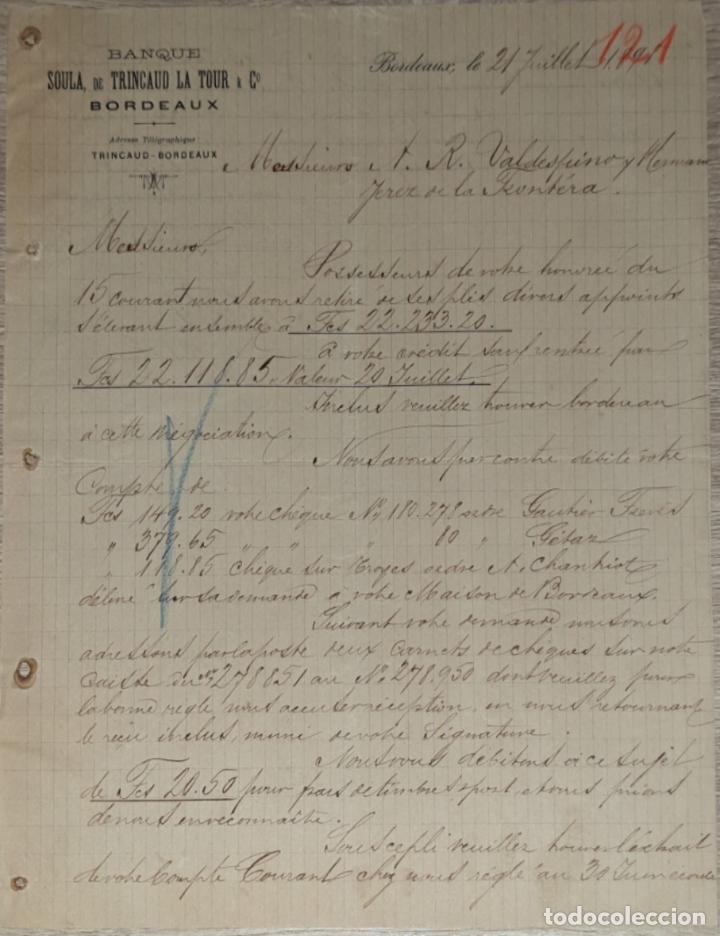 BANQUE
SOULA, DE TRINCAUD LA TOUR & Cº
BORDEAUX
Adresse Télégraphique:
TRINCAUD-BORDEAUX
Bordeaux, le 21 Juillet
121
Messieurs A. R. Valdespino y Hermano
Jerez de la Frontéra.
Messieurs,
Possesseurs de votre honorée du
15 courant nous avons retiré de ses plis divers appoints
s'élevant ensemble à Fcs 22.233.20.
à votre crédit sauf rentrée par
Fcs 22.118.85. Valeur 20 Juillet.
Inclus veuillez trouver bordereau
à cette négociation.
Nous avons par contre débité votre
Compte de
Fcs 149.20 votre chèque Nº 180.278 ordre Gautier Frères
" 379.65 " " " 80 "
" 118.85 chèque sur Troyes ordre A. Chantriot
délivré sur sa demande à votre Maison de Bordeaux.
Suivant votre demande nous vous
adressons par la poste deux carnets de chèques sur notre
Caisse du Nº 278851 au Nº 278.950 dont veuillez pour
la bonne règle nous accuser réception, en nous retournant
le reçu inclus, muni de votre Signature.
Nous vous débitons à ce sujet
de Fcs 20.50 pour frais de timbres & port, et vous prions
de nous en reconnaître.
Sous ce pli veuillez trouver l'extrait
de votre Compte Courant chez nous réglé au 30 Juin écoulé
todocoleccion